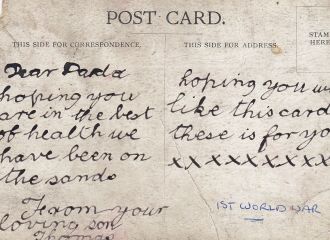 POST CARD.
THIS SIDE FOR CORRESPONDENCE.
THIS SIDE FOR ADDRESS.
STAMP
HERE
Dear Dada
hoping you
are in the best
of health we
have been on
the sands
From your
loving son
Thomas
hoping you
like this card
these is for yo
xxxxxxxxx
1ST WORLD WAR